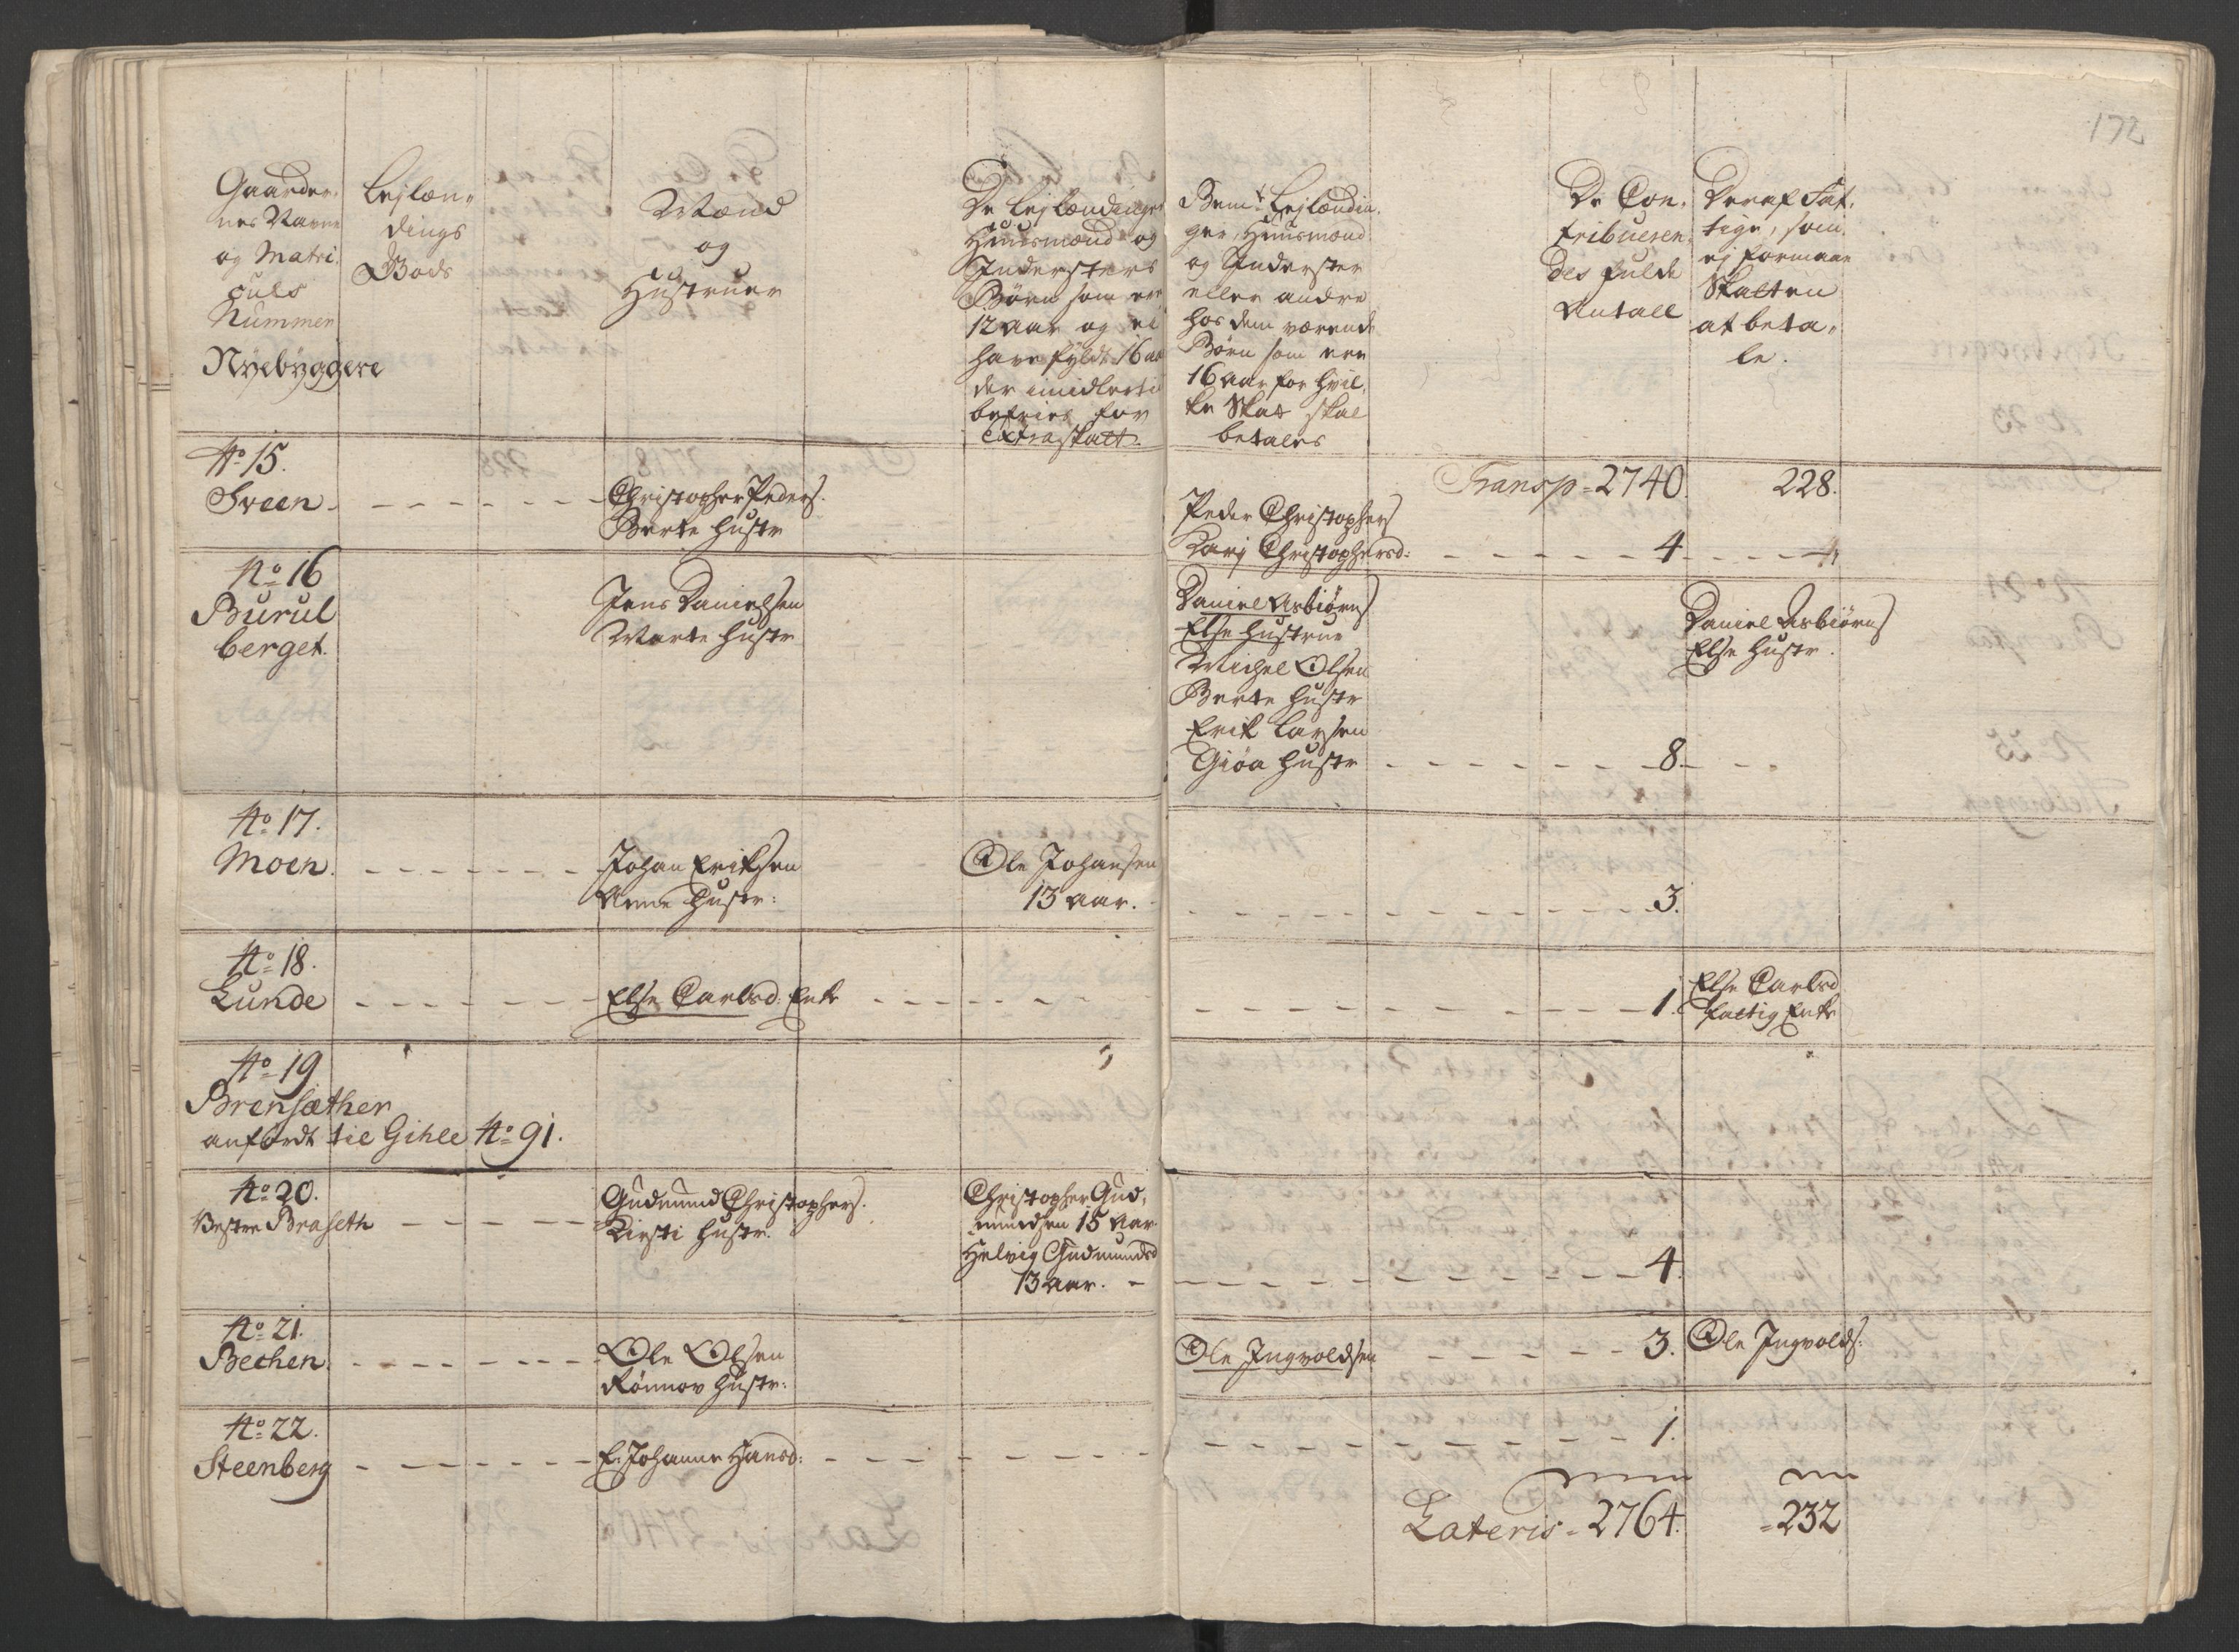 172
Gaarder,
nes Navne
og Matri,
culs
Nummer
Nÿebÿggere
Lejlæn,,
dings
Bøds
Mænd
og
Hustruer
De Lejlændinger
Huusmænd og
Indersters
Børn som ere
12 aar og ei
have fÿldt 16 aar
der imidlertid
befries for
Extraskatt.
Bemte Lejlændin,
ger, Huusmænd
og Inderster
eller andre
hos dem værende
Børn som ere
16 aar for hvil,
ke Skat skal
betales
De Con,
tribueren,
des fulde
Antall
Deraf Fat,
tige, som
ej formaar
Skatten
at beta,,
le.
Transp = 2740. 228.
No 15.
Sveen. Christopher Peders.
Berte Hustr
Peder Christophers
Karj Christophersd: 4
No 16
Burul
berget.
Jens Danielsen
Marte Hustr
Daniel Asbiørns
Else Hustrue
Michel Olsen
Berte Hustr
Erik Larsen
Giøa Hustr 8.
Daniel Asbiørns
Else Hustr.
No 17.
Moen. Johan Eriksen
Anne Hustr:
Ole Johansen
13 aar. 3.
No 18.
Lunde Else Carlsd: Enke 1.
Else Carlsd
fattig Enke
No 19
Brensæther
anfördt til Gihle No 91.
No 20.
Vestre Braseth Gudmund Christophers.
Kirsti Hustr.
Christopher Gud,
mundsen 15 Aar
Helvig Gudmundsd
13 aar. 4.
No 21.
Bechen. Ole Olsen
Rönnov Hustr:
Ole Ingvoldsen 3. Ole Ingvolds:
No 22.
Steenberg E. Johanne Hansd: 1.
Lateris = 2764. = 232